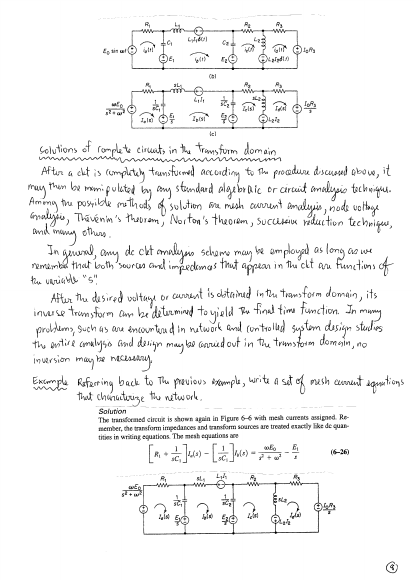 R₁ L₁ R₂ R₃
L₁I₁δ(t)
E₀ sin ωt C₁ C₂ L₂ I₀R₃
E₁ E₂
(b)
R₁ sL₁ R₂ R₃
L₁I₁
ωE₀
s² + ω²
I₀R₃
s
(c)
Solutions of complete circuits in the transform domain
After a ckt is completely transformed according to the procedure discussed above, it
may then be manipulated by any standard algebraic or circuit analysis technique.
Among the possible methods of solution are mesh current analysis, node voltage
analysis, Thévenin's theorem, Norton's theorem, successive reduction technique,
and many others.
In general, any dc ckt analysis scheme may be employed as long as we
remember that both sources and impedances that appear in the ckt are functions of
the variable "s".
After the desired voltage or current is obtained in the transform domain, its
inverse transform can be determined to yield the final time function. In many
problems, such as are encountered in network and controlled system design studies
the entire analysis and design may be carried out in the transform domain, no
inversion may be necessary.
Example Referring back to the previous example, write a set of mesh current equations
that characterize the network.
Solution
The transformed circuit is shown again in Figure 6–6 with mesh currents assigned. Re-
member, the transform impedances and transform sources are treated exactly like dc quan-
tities in writing equations. The mesh equations are
[R₁ + 1/sC₁] Iₐ(s) − [1/sC₁] I_b(s) = ωE₀/(s² + ω²) − E₁/s (6–26)
R₁ sL₁ L₁I₁ R₂ R₃
ωE₀
s² + ω²
I₀R₃
s